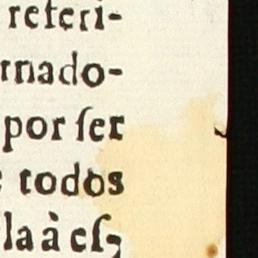 referi-
rnado-
por ſer
todos
la à eſ-